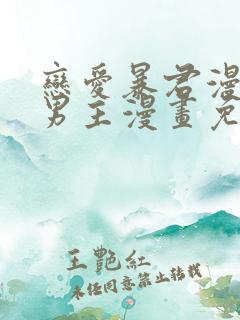 戀愛暴君漫
男主漫畫免
王艷紅
未经同意禁止转载